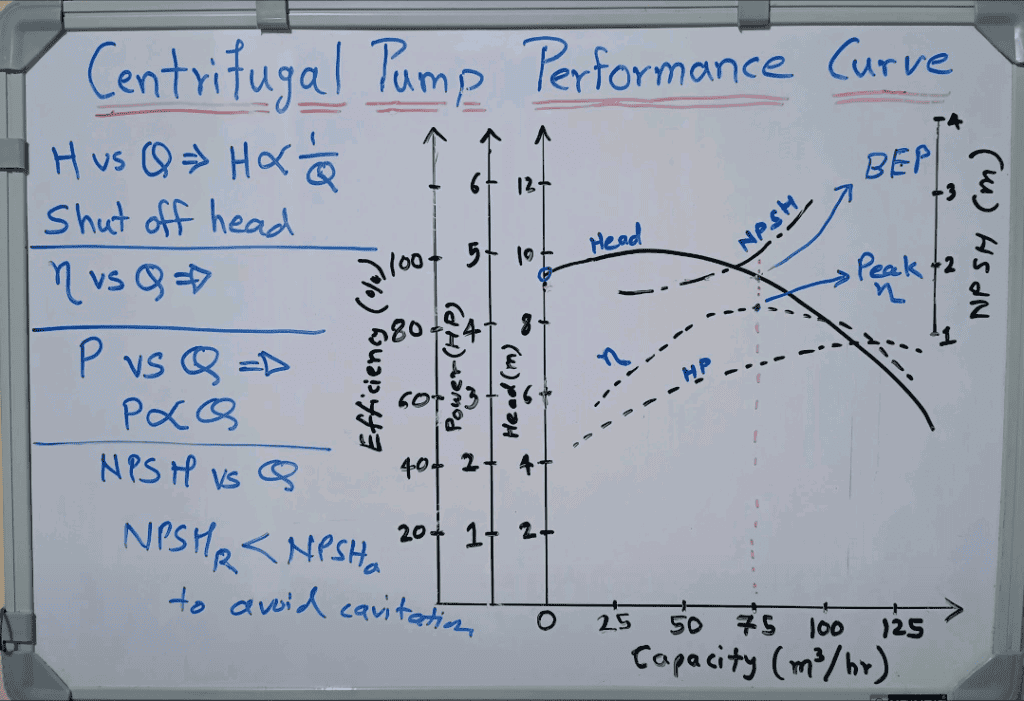 Centrifugal Pump Performance Curve
H vs Q ⇒ H ∝ 1/Q
Shut off head
η vs Q ⇒
P vs Q ⇒
P ∝ Q
NPSH vs Q
NPSHR < NPSHa
to avoid cavitation
Efficiency (%)
100
80
60
40
20
Power (HP)
6
5
4
3
2
1
Head (m)
12
10
8
6
4
2
Head
NPSH
BEP
Peak
η
η
HP
4
3
2
1
NPSH (m)
0 25 50 75 100 125
Capacity (m³/hr)